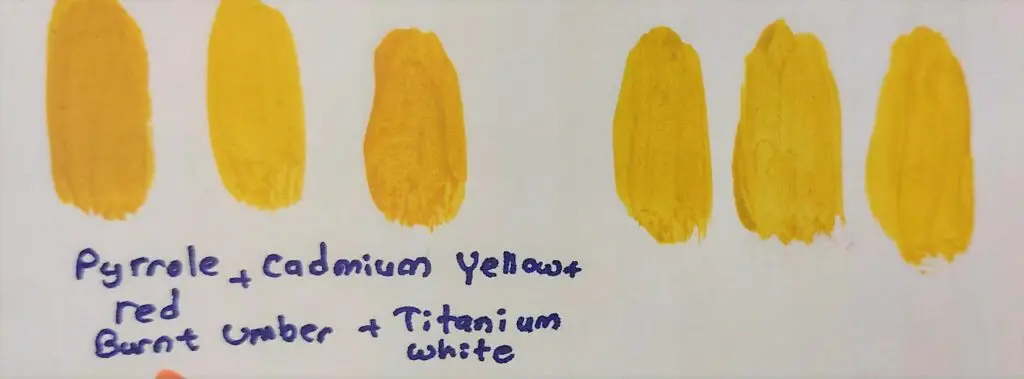 Pyrrole + Cadmium Yellow+
red
Burnt umber + Titanium
white